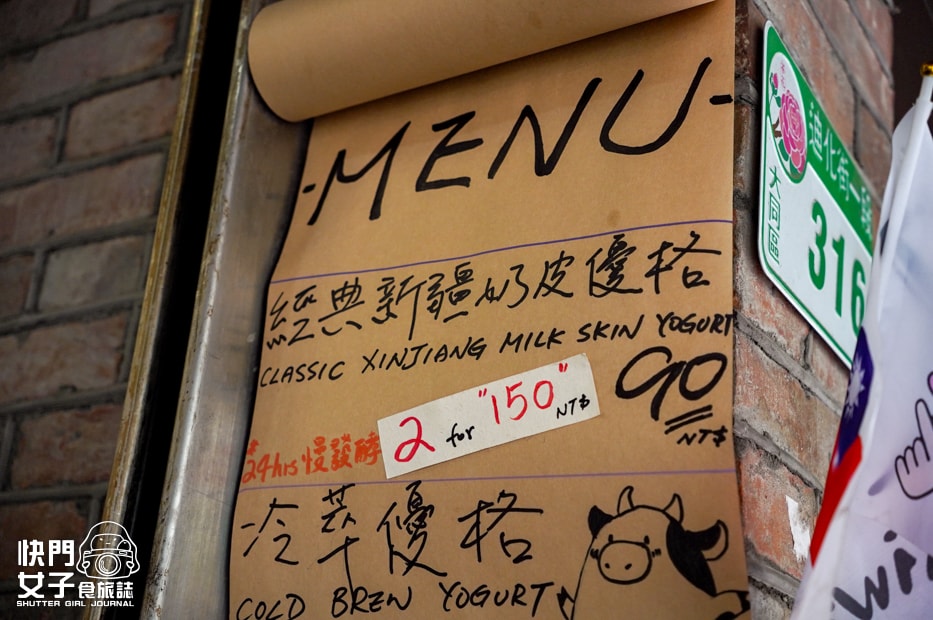 -MENU-
經典新疆奶皮優格
CLASSIC XINJIANG MILK SKIN YOGURT
90 NT$
2 for "150" NT$
24hrs慢發酵
冷萃優格
COLD BREW YOGURT
迪化街一段
大同區
316
快門女子食旅誌
SHUTTER GIRL JOURNAL